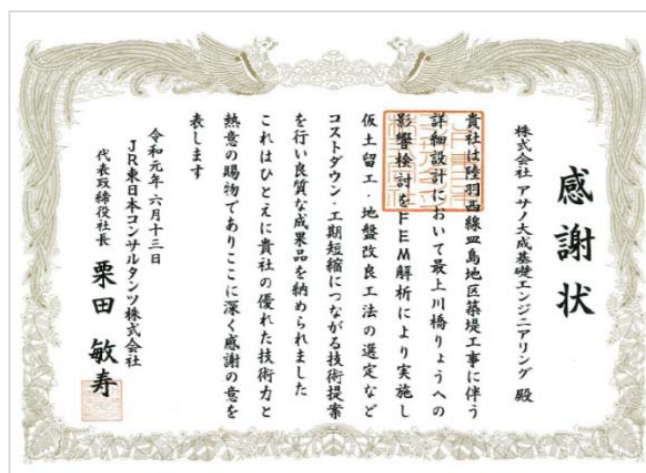 感謝状
株式会社 アサノ大成基礎エンジニアリング 殿
貴社は陸羽西線皿島地区築堤工事に伴う
詳細設計において最上川橋りょうへの
影響検討をFEM解析により実施し
仮土留工・地盤改良工法の選定など
コストダウン・工期短縮につながる技術提案
を行い良質な成果品を納められました
これはひとえに貴社の優れた技術力と
熱意の賜物でありここに深く感謝の意を
表します
令和元年六月十三日
JR東日本コンサルタンツ株式会社
代表取締役社長 栗田 敏寿